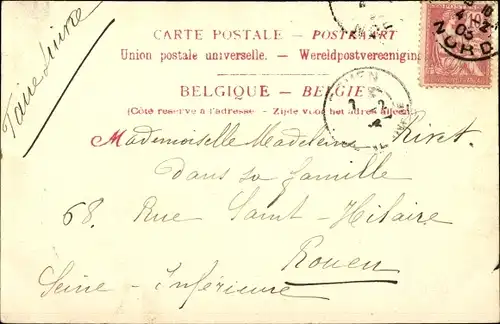 CARTE POSTALE – POSTKAART
Union postale universelle. – Wereldpostvereeniging
BELGIQUE – BELGIE
(Côté réservé à l'adresse. – Zijde voor het adres alleen)
Faire suivre
10
NORD
Mademoiselle Madeleine Rivet
dans sa famille
68. Rue Saint-Hilaire
Rouen
Seine-Inférieure